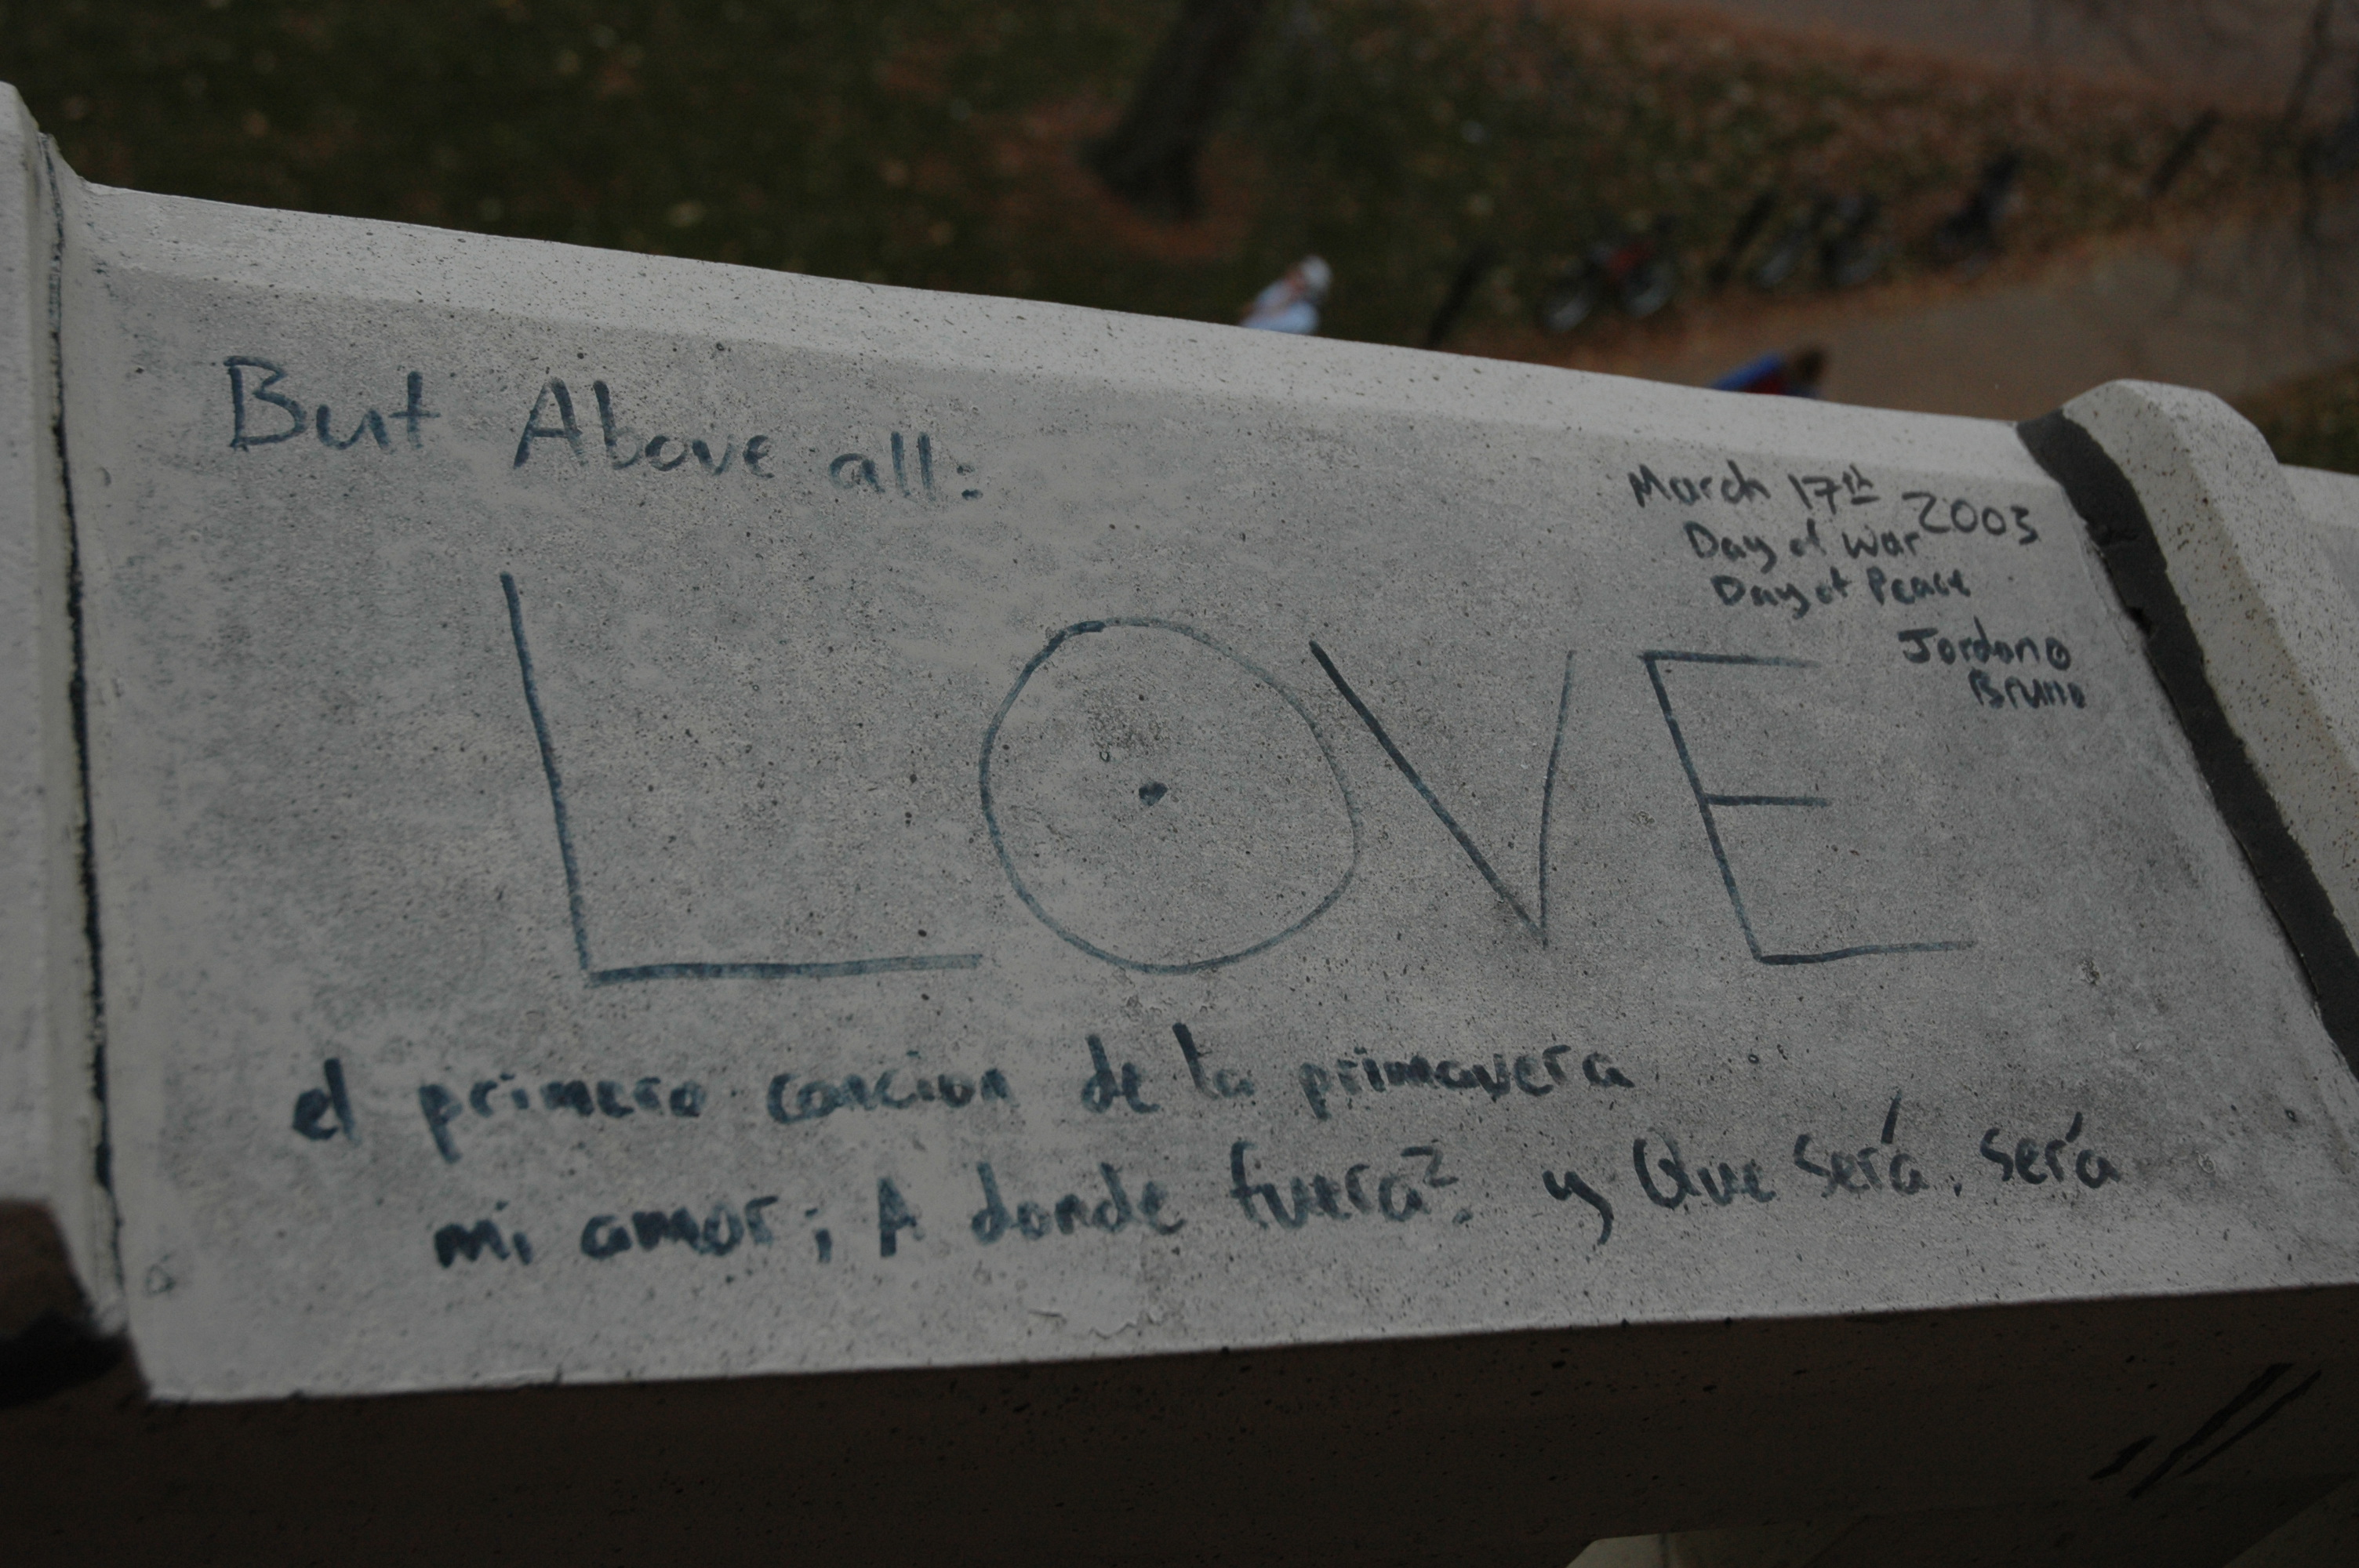 But Above all:
March 17th 2003
Day of War
Day of Peace
Jordano
Bruno
LOVE
el primero cancion de la primavera
mi amor; A donde fuera? y Que será, será